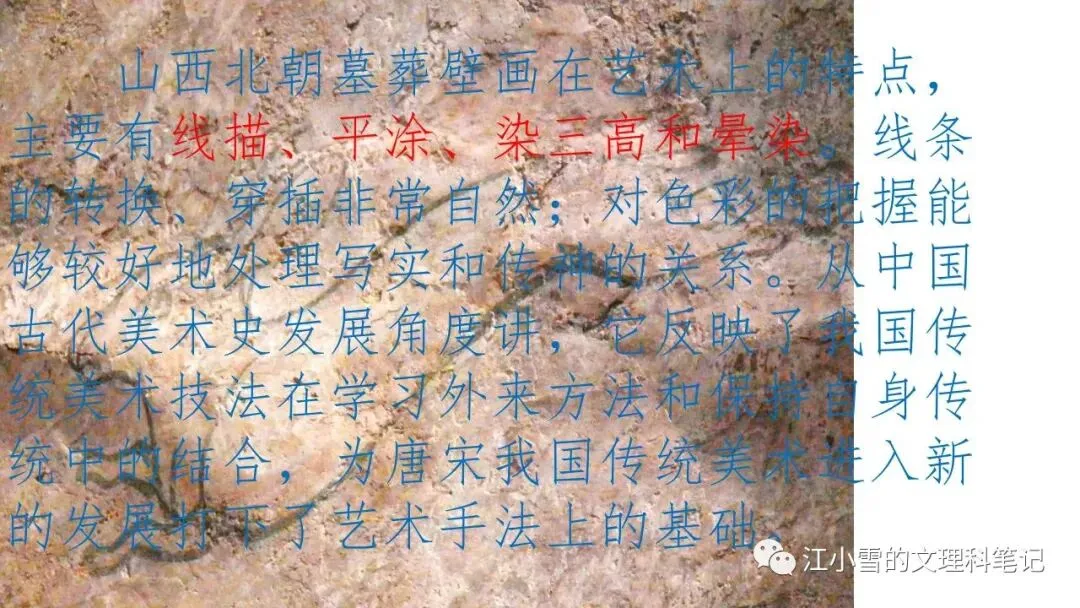 山西北朝墓葬壁画在艺术上的特点，
主要有线描、平涂、染三高和晕染。线条
的转换、穿插非常自然；对色彩的把握能
够较好地处理写实和传神的关系。从中国
古代美术史发展角度讲，它反映了我国传
统美术技法在学习外来方法和保持自身传
统中的结合，为唐宋我国传统美术进入新
的发展打下了艺术手法上的基础。
江小雪的文理科笔记